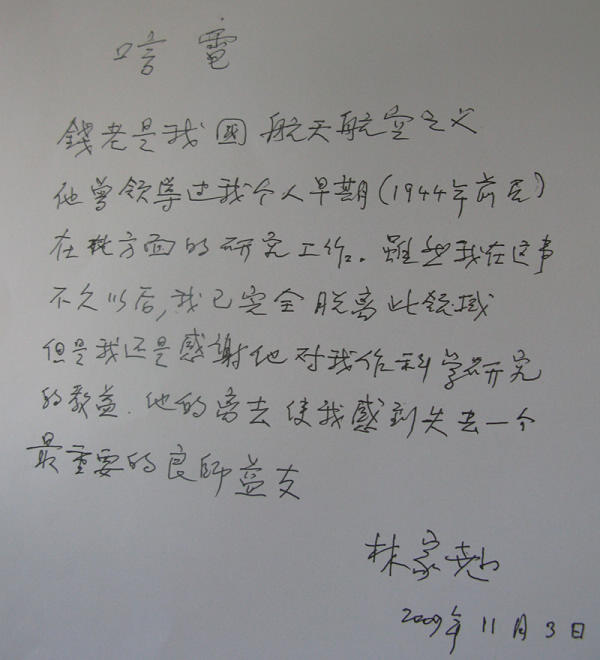 唁電
錢老是我國航天航空之父
他曾领导过我个人早期(1944年前后)
在此方面的研究工作。雖然我在这事
不久以后,我已完全脱离此领域
但是我还是感謝他对我作科学研究
的教益.他的离去使我感到失去一个
最重要的良師益友
林家翘
2009年11月3日